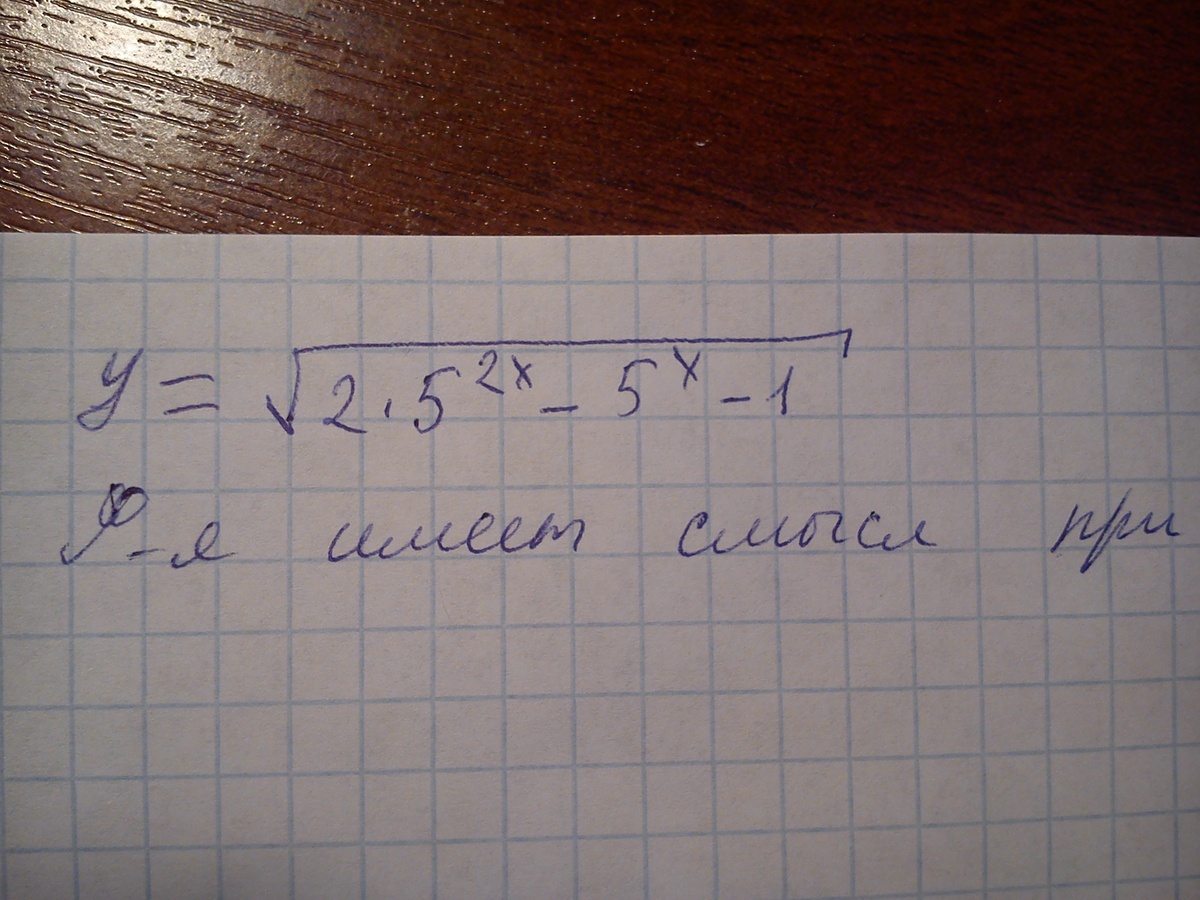 y = √(2·5^(2x) - 5^x - 1)
Ф-я имеет смысл при